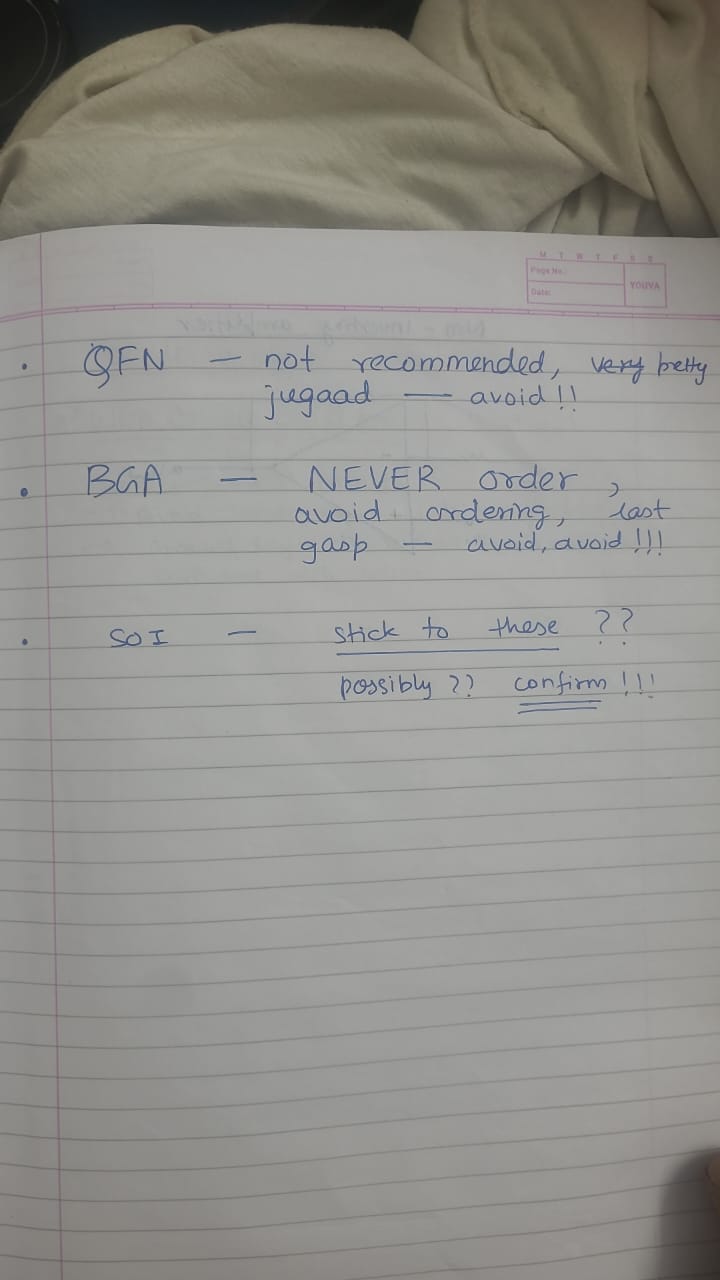 M T W T F S S
Page No.:
Date:
YOUVA
• QFN — not recommended, very petty
jugaad — avoid!!
• BGA — NEVER order,
avoid ordering, last
gasp — avoid, avoid!!!
• SOI — stick to these ??
possibly ?? confirm!!!